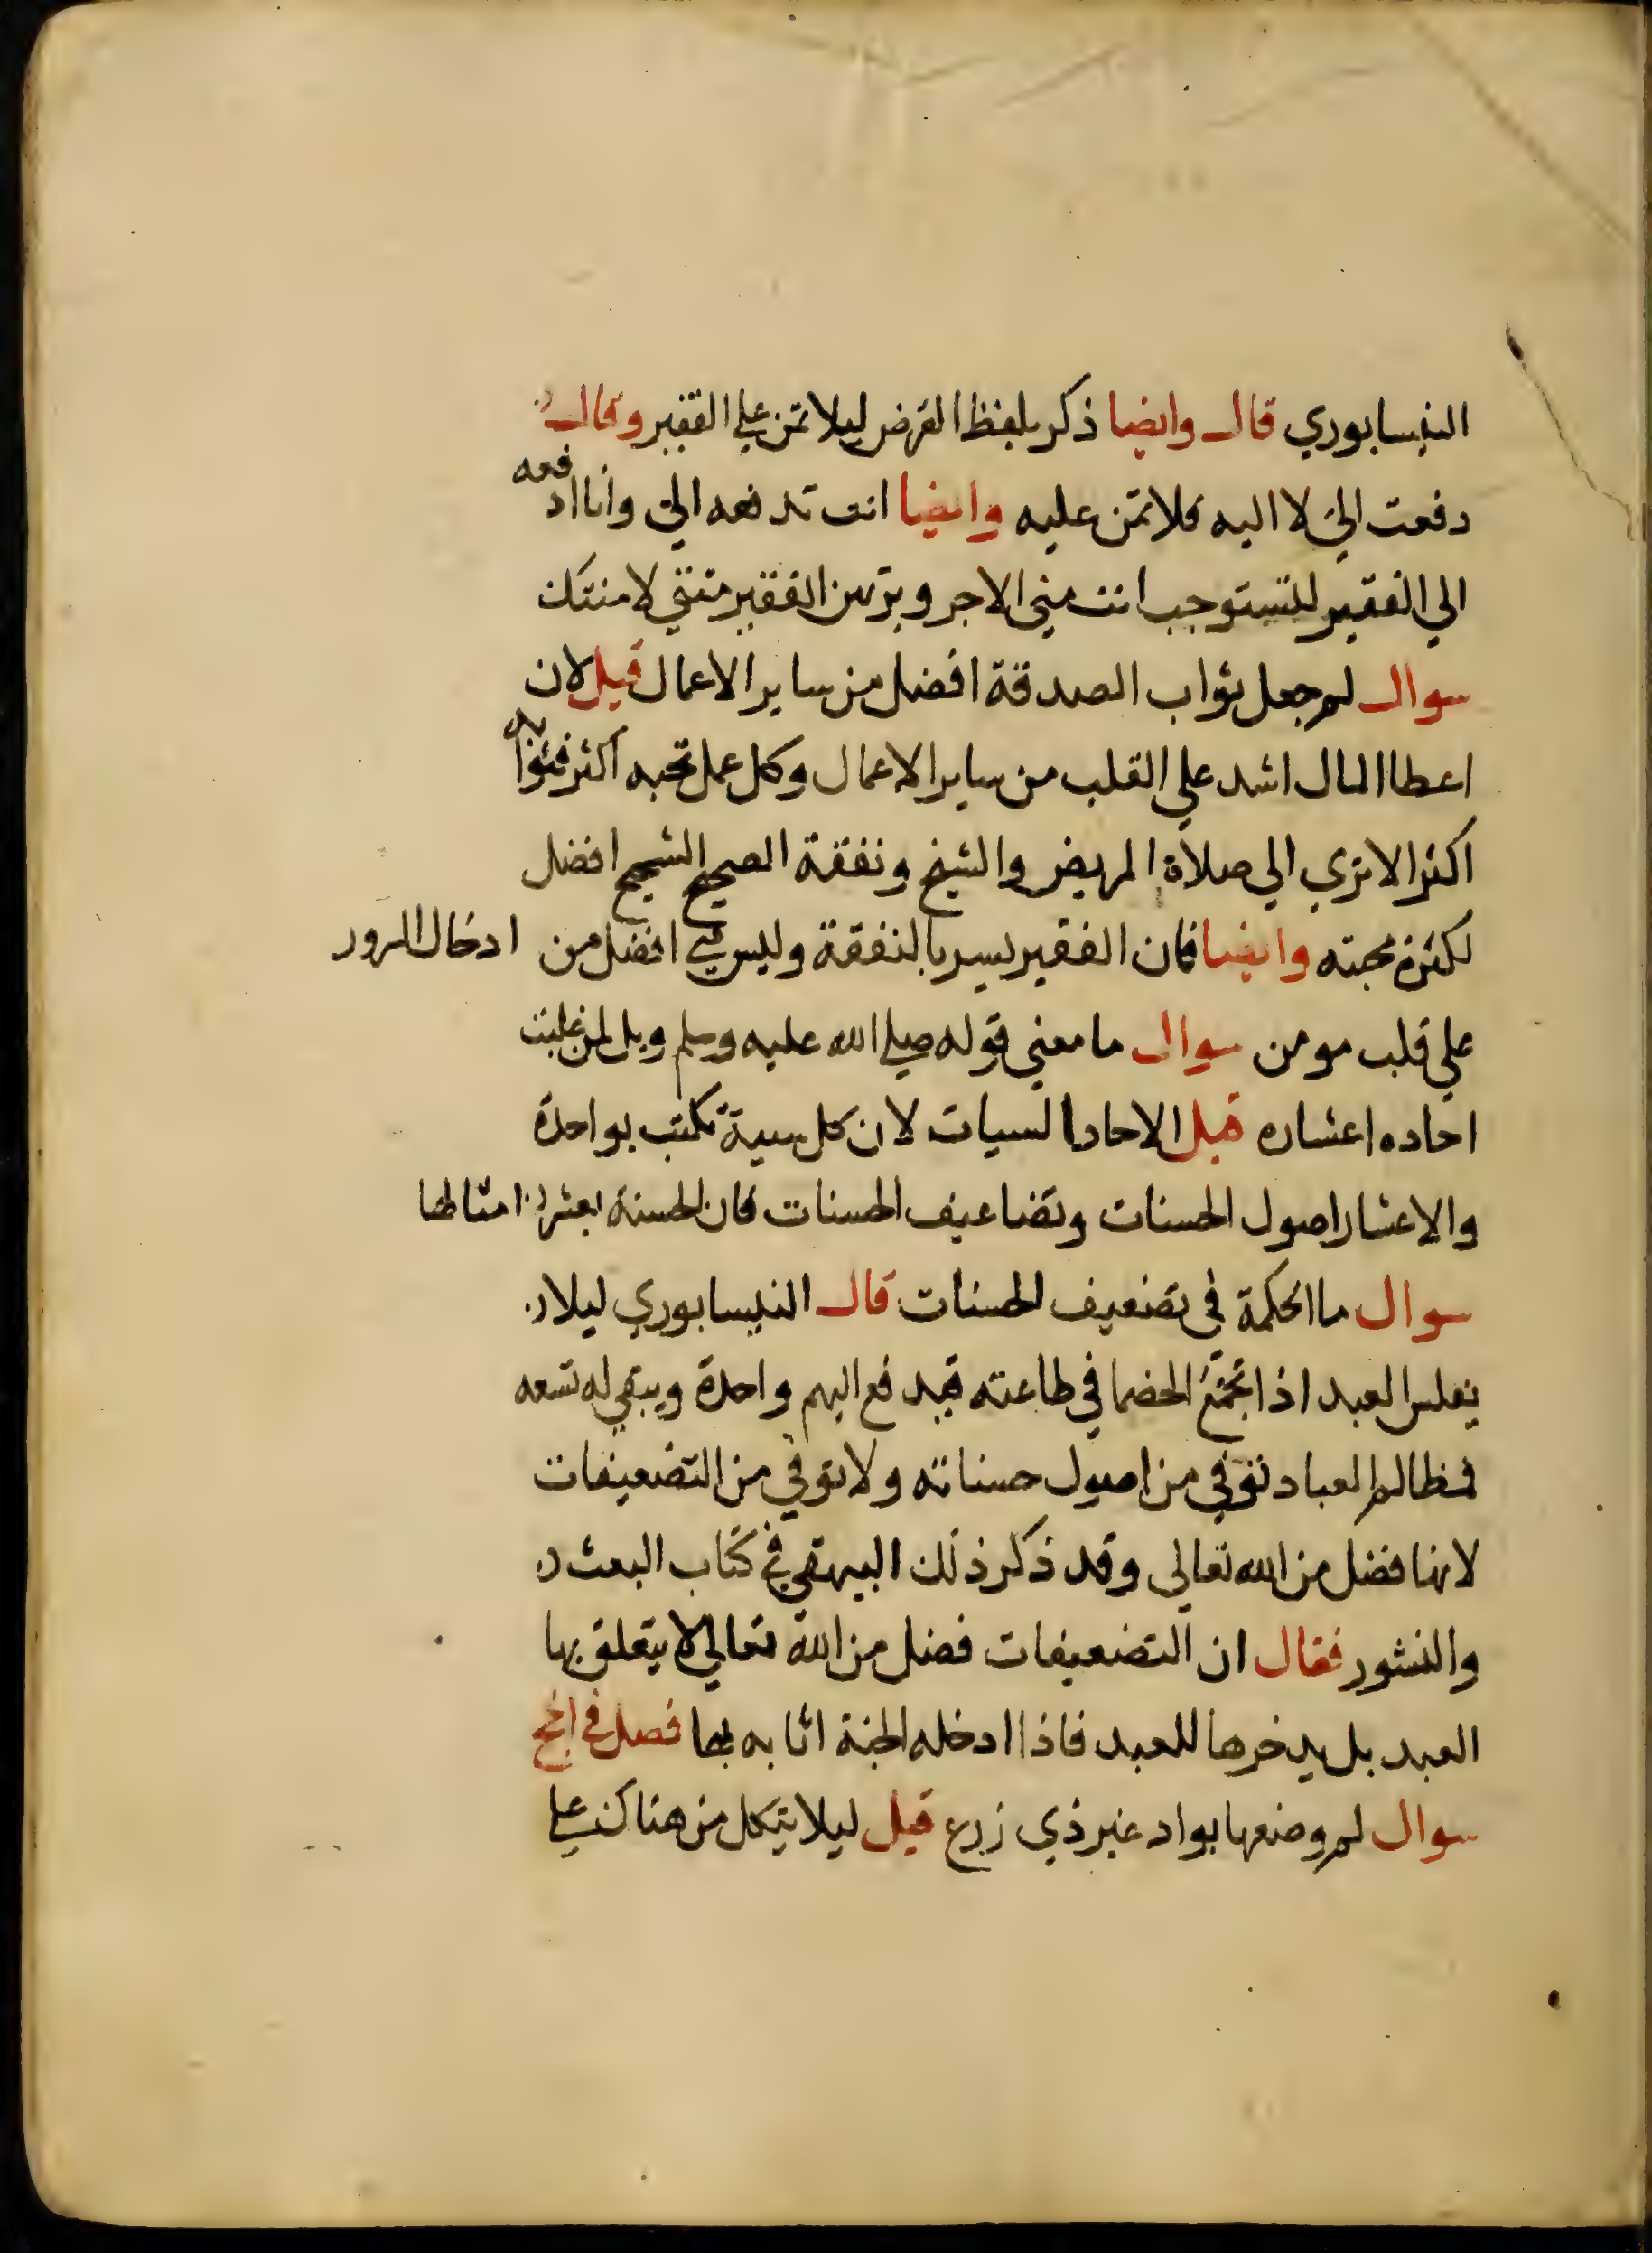 النيسابوري قال وايضا ذكر بلفظ القرض ليلا تمن علي الفقير وقال
دفعت الي لا اليه فلا تمن عليه وايضا انت تدفعه الي وانا ادفعه
الي الفقير لتستوجب انت مني الاجر ويرى من الفقير منتي لا منتك
سوال لم جعل ثواب الصدقة افضل من ساير الاعمال قيل لان
اعطا المال اشد علي القلب من ساير الاعمال وكل عمل تحبه اكثر فثوابه
اكثر الا تري الي صلاة المريض والشيخ ونفقة الصحيح الشحيح افضل
لكثرة محبته وايضا فان الفقير يسر بالنفقة وليس شي افضل من ادخال السرور
علي قلب مومن سوال ما معني قوله صلي الله عليه وسلم ويل لمن غلبت
احاده اعشاره قيل الاحاد السيات لان كل سية تكتب بواحدة
والاعشار اصول الحسنات وتضاعيف الحسنات فان الحسنة بعشر امثالها
سوال ما الحكمة في تضعيف الحسنات قال النيسابوري ليلا
يفلس العبد اذا اجتمع الخصما في طاعته فيدفع اليهم واحدة ويبقي له تسعه
فمظالم العباد توفي من اصول حسناته ولا توفي من التضعيفات
لانها فضل من الله تعالى وقد ذكر ذلك البيهقي في كتاب البعث
والنشور فقال ان التضعيفات فضل من الله تعالي لا يتعلق بها
العبد بل يدخرها للعبد فاذا ادخله الجنة اثابه بها فصل في الحج
سوال لم وضعها بواد غير ذي زرع قيل ليلا يتكل من هناك علي